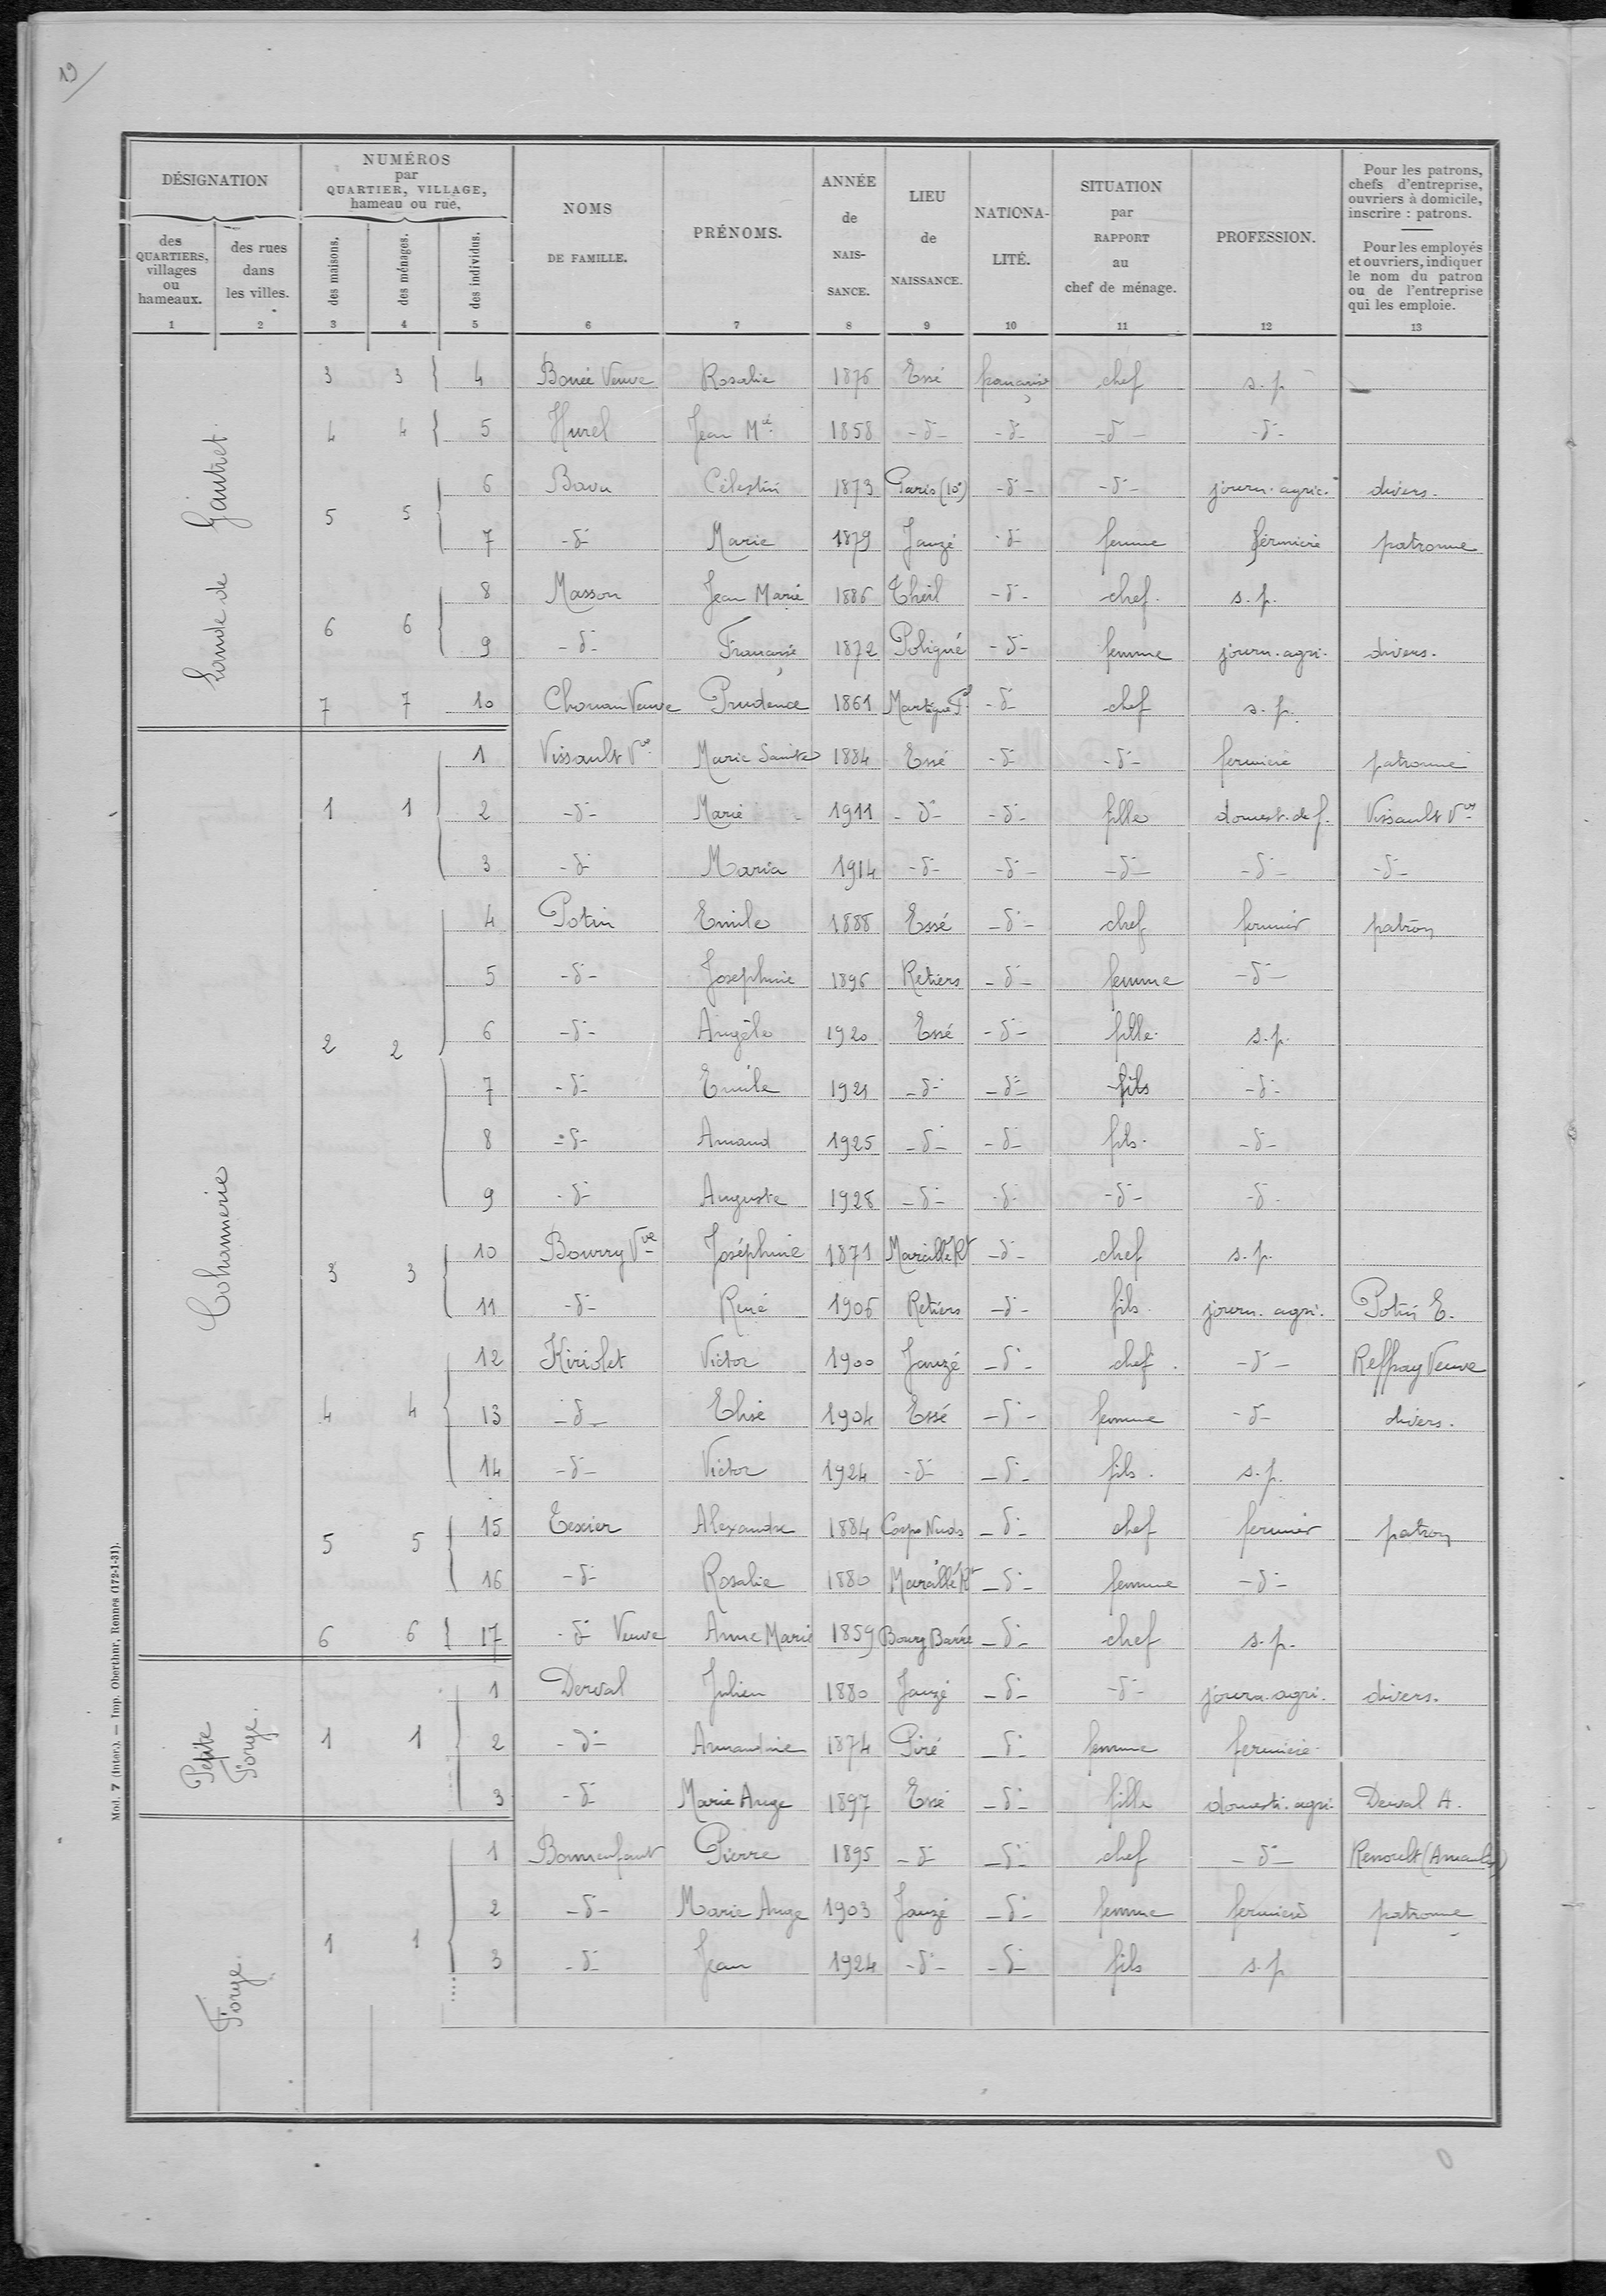 19
DÉSIGNATION
des QUARTIERS, villages ou hameaux.
des rues dans les villes.
NUMÉROS par QUARTIER, VILLAGE, hameau ou rue,
des maisons.
des ménages.
des individus.
NOMS DE FAMILLE.
PRÉNOMS.
ANNÉE de NAIS-SANCE.
LIEU de NAISSANCE.
NATIONA-LITÉ.
SITUATION par RAPPORT au chef de ménage.
PROFESSION.
Pour les patrons, chefs d'entreprise, ouvriers à domicile, inscrire : patrons.
Pour les employés et ouvriers, indiquer le nom du patron ou de l'entreprise qui les emploie.
1 2 3 4 5 6 7 8 9 10 11 12 13
Lande de Gautret.
3 3 4 Veuve Rosalie 1876 Essé française chef s.p
4 4 5 Hurel Jean Mie 1858 -d- -d- -d- -d-
5 5 6 Célestin 1873 Paris (10e) -d- -d- journ. agric. divers.
7 -d- Marie 1879 Janzé -d- femme fermière patronne
6 6 8 Masson Jean Marie 1886 Theil -d- chef. s.p.
9 -d- Française 1872 Poligné -d- femme journ. agri. divers.
7 7 10 Chouan Veuve Prudence 1861 Martigné F. -d- chef s.p.
Cohannerie
1 1 1 Vissault Vve Marie Sainte 1884 Essé -d- -d- fermière patronne
2 -d- Marie 1911 -d- -d- fille domest. de f. Vissault Vve
3 -d- Maria 1914 -d- -d- -d- -d- -d-
2 2 4 Potin Emile 1888 Essé -d- chef fermier patron
5 -d- Josephine 1896 Retiers -d- femme -d-
6 -d- Angèle 1920 Essé -d- fille s.p.
7 -d- Emile 1921 -d- -d- fils -d-
8 -d- Amand 1925 -d- -d- fils. -d-
9 -d- Auguste 1928 -d- -d- -d- -d-
3 3 10 Bourry Vve Joséphine 1871 Marcillé Rt -d- chef s.p.
11 -d- René 1906 Retiers -d- fils. journ. agri. Potin E.
4 4 12 Kiriolet Victor 1900 Janzé -d- chef. -d- Reffray Veuve
13 -d- Elise 1904 Essé -d- femme -d- divers.
14 -d- Victor 1924 -d- -d- fils. s.p.
5 5 15 Texier Alexandre 1884 Corps Nuds -d- chef fermier patron
16 -d- Rosalie 1880 Marcillé Rt -d- femme -d-
6 6 17 -d- Veuve Anne Marie 1859 Bourg Barré -d- chef s.p.
Petite Forge.
1 1 1 Derval Julien 1880 Janzé -d- -d- journ. agri. divers.
2 -d- Amandine 1874 Piré -d- femme fermière
3 -d- Marie Ange 1897 Essé -d- fille domesti. agri. Derval A.
Forge.
1 1 1 Bonnenfant Pierre 1895 -d- -d- chef -d- Renoult (Amanlis)
2 -d- Marie Ange 1903 Janzé -d- femme fermière patronne
3 -d- Jean 1924 -d- -d- fils s.p
Mod. 7 (Inter.). — Imp. Oberthur, Rennes (172-1-31).